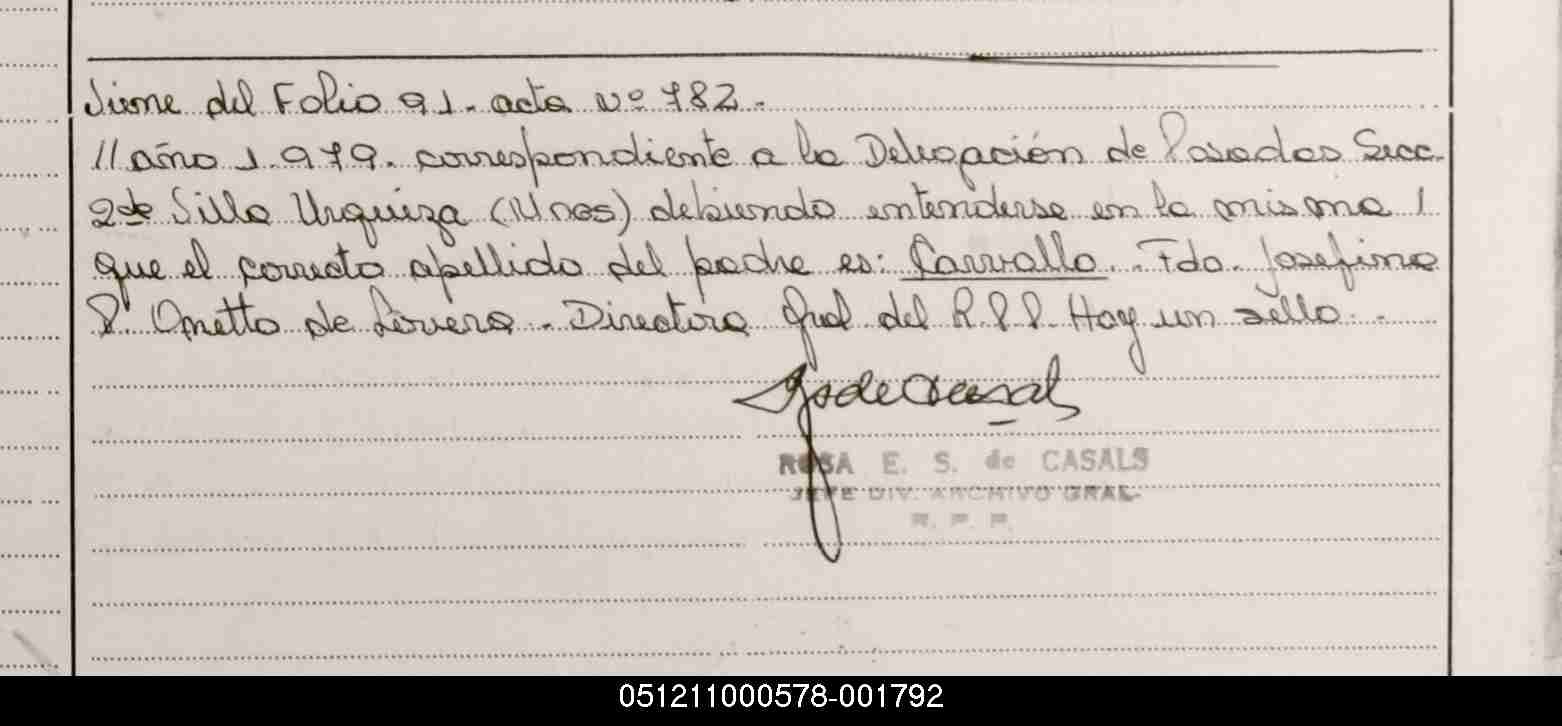 Viene del Folio 91. acta Nº 782.
// año 1.979. correspondiente a la Delegación de Posadas Secc.
2da Villa Urquiza (Mnes) debiendo entenderse en la misma /
que el correcto apellido del padre es: Carvallo. Fdo. Josefina
P. Ometto de Lovera. Directora Gral del R.P.P. Hay un sello.
ROSA E. S. de CASALS
JEFE DIV. ARCHIVO GRAL.
R. P. P.
051211000578-001792